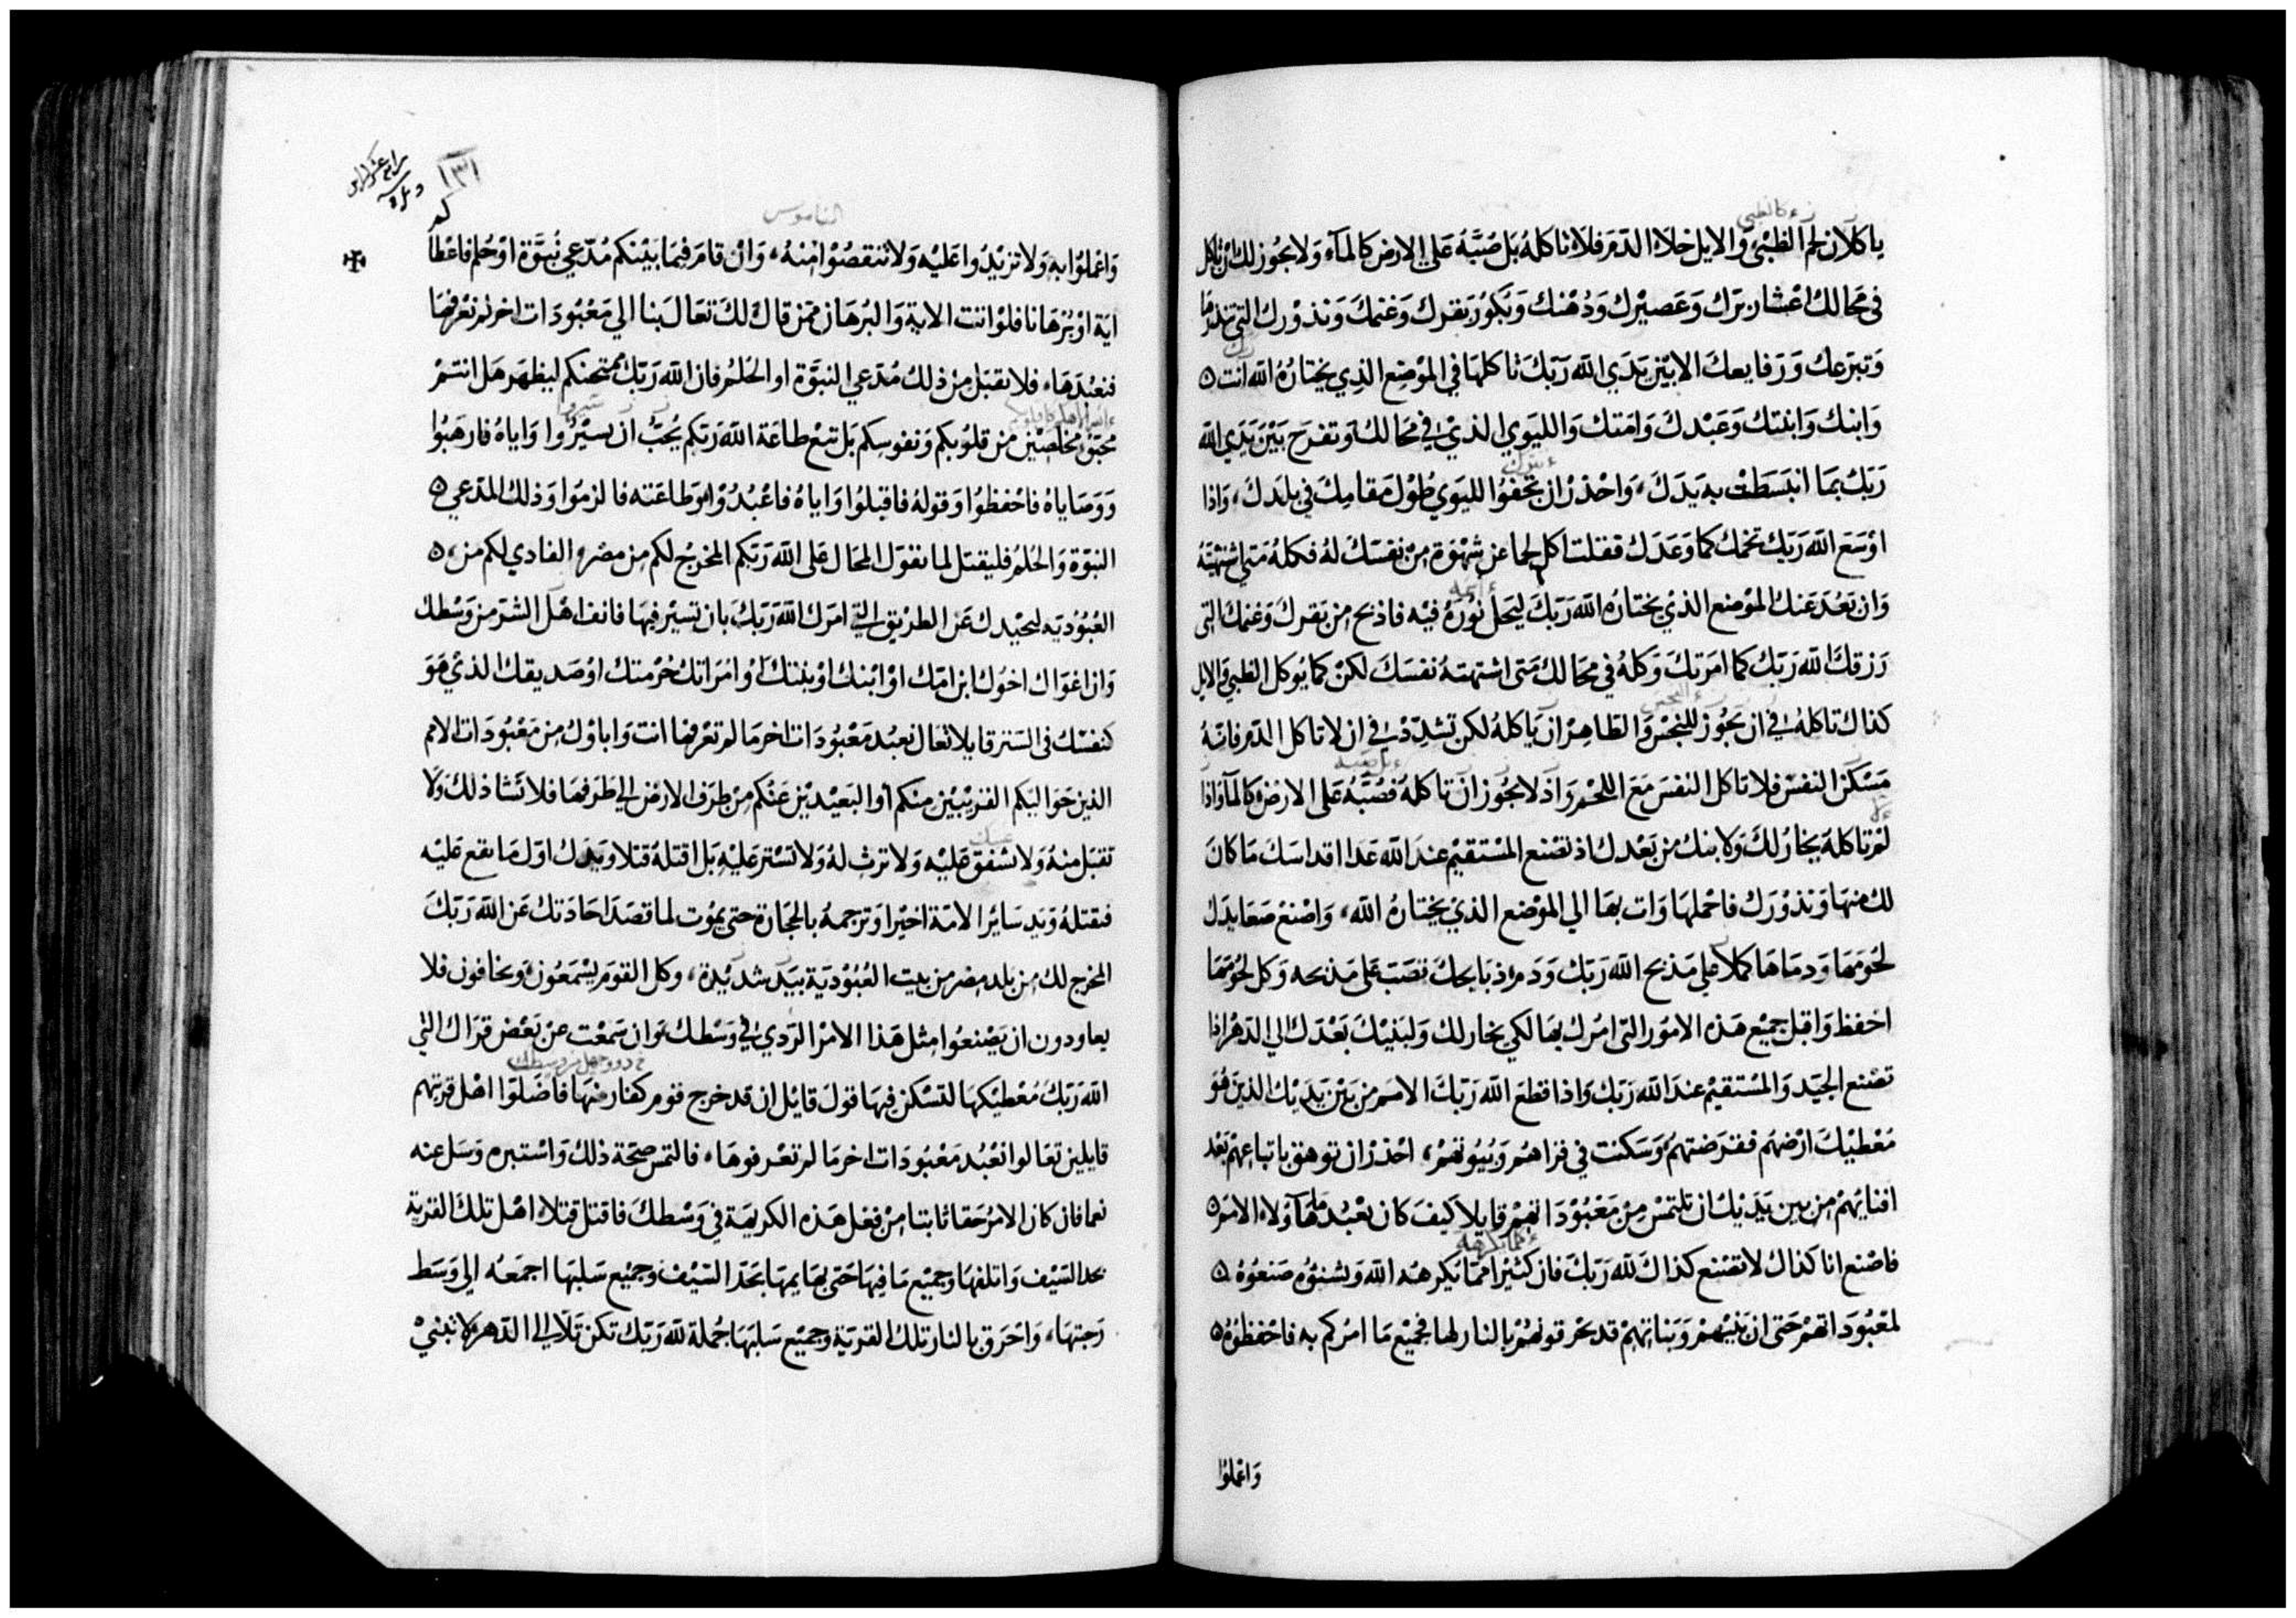 ياكلان لحم الظبي والايل خلاء الدم فلا تاكله بل صبه على الارض كالمآء ولا يجوز لك ان تاكل
في محالك اعشار برك وعصيرك ودهنك وبكور بقرك وغنمك ونذورك التي تنذرها
وتبرعك ورفايعك الا بين يدي الله ربك تاكلها في الموضع الذي يختاره الله انت
وابنك وابنتك وعبدك وامتك والليوي الذي في محالك وتفرح بين يدي الله
ربك بما انبسطت به يدك، واحذر ان تجفوا الليوي طول مقامك في بلدك، واذا
اوسع الله ربك تخمك كما وعدك فقلت اكل لحما عن شهوة من نفسك له فكله متي اشتهيته
وان بعد عنك الموضع الذي يختاره الله ربك ليحل نوره فيه فاذبح من بقرك وغنمك التي
رزقك الله ربك كما امرتك وكله في محالك متى اشتهته نفسك لكن كما يوكل الظبي والايل
كذاك تاكله في ان يجوز للنجس والطاهر ان ياكله لكن تشدد في ان لا تاكل الدم فانه
مسكن النفس فلا تاكل النفس مع اللحم واذ لا يجوز ان تاكله فصبه على الارض كالمآ واذا
لم تاكله يخار لك ولابنك من بعدك اذ تصنع المستقيم عند الله عدا اقداسك ما كان
لك منها ونذورك فاحملها وات بها الي الموضع الذي يختاره الله، واصنع صعايدك
لحومها ودماها كملا علي مذبح الله ربك ودم ذبايحك تصب على مذبحه وكل لحومها
احفظ واقبل جميع هذه الامور التى امرك بها لكي يخار لك ولبنيك بعدك الي الدهر اذا
تصنع الجيد والمستقيم عند الله ربك واذا قطع الله ربك الامم من بين يديك الذين هو
معطيك ارضهم فقرضتهم وسكنت في قراهم وبيوتهم، احذر ان توهق باتباعهم بعد
افنايهم من بين يديك ان تلتمس من معبوداتهم قايلا كيف كان يعبد هآولاء الامم
فاصنع انا كذاك لا تصنع كذاك لله ربك فان كثيرا مما يكرهه الله ويشنؤه صنعوه
لمعبوداتهم حتى ان بنيهم وبناتهم قد يحرقونهم بالنار لها فجميع ما امركم به فاحفظوه
واعملوا
الناموس
واعملوا به ولا تزيدوا عليه ولا تنقصوا منه، وان قام فيما بينكم مدعي نبوة او حلم فاعطا
اية او برهانا فلو اتت الاية والبرهان ممن قال لك تعال بنا الي معبودات اخر لم نعرفها
فنعبدها، فلا تقبل من ذلك مدعي النبوة او الحلم فان الله ربك ممتحنكم ليظهر هل انتم
محبوه مخلصين من قلوبكم ونفوسكم بل تبع طاعة الله ربكم يجب ان تسيروا واياه فارهبوا
ووصاياه فاحفظوا وقوله فاقبلوا واياه فاعبدوا وطاعته فالزموا وذلك المدعي
النبوة والحلم فليقتل لما نقول المحال على الله ربكم المخرج لكم من مصر والفادي لكم من
العبودية ليحيدك عن الطريق التي امرك الله ربك بان تسير فيها فانف اهل الشر من وسطك
وان اغواك اخوك ابن امك او ابنك او بنتك او امراتك حرمتك او صديقك الذي هو
كنفسك في الستر قايلا تعال نعبد معبودات اخر ما لم تعرفها انت واباوك من معبودات الامم
الذين حواليكم القريبين منكم او البعيدين عنكم من طرف الارض الي طرفها فلا تشا ذلك ولا
تقبل منه ولا تشفق عليه ولا ترث له ولا تستر عليه بل اقتله قتلا ويدك اول ما يقع عليه
فتقتله ويد ساير الامة اخيرا وترجمه بالحجارة حتى يموت لما قصد احادتك عن الله ربك
المخرج لك من بلد مصر من بيت العبودية بيد شديدة، وكل القوم يسمعون ويخافون فلا
يعاودون ان يصنعوا مثل هذا الامر الردي في وسطك وان سمعت عن بعض قراك التي
الله ربك معطيكها لتسكن فيها قول قايل ان قد خرج قوم كفار منها فاضلوا اهل قريتهم
قايلين تعالوا نعبد معبودات اخر ما لم تعرفوها، فالتمس صحة ذلك واستبره وسل عنه
نعما فان كان الامر حقا ثابتا من فعل هذه الكريهة في وسطك فاقتل قتلا اهل تلك القرية
بحد السيف واتلفها وجميع ما فيها حتى بهايمها بحد السيف وجميع سلبها اجمعه الي وسط
رحبتها، واحرق بالنار تلك القرية وجميع سلبها جملة لله ربك تكن تلا الي الدهر لا تبني